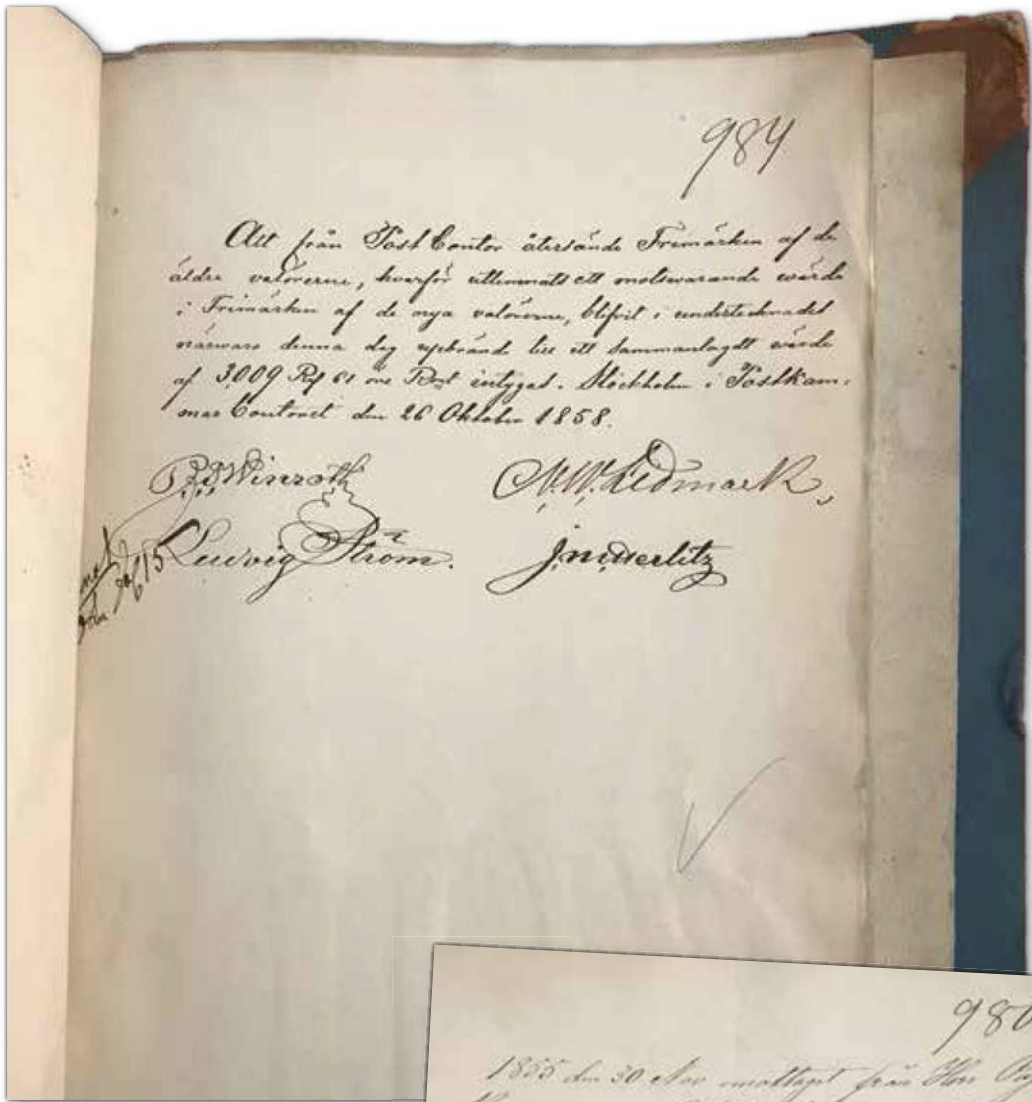 984
Att från Post Contor återsände Frimärken af de
äldre valörerne, hvarför utlemnats ett motsvarande värde
i Frimärken af de nya valörerne, blifvit i undertecknades
närvaro denna dag uppbrände till ett sammanlagdt värde
af 3,009 Rd 61 öre Rmt intygas. Stockholm i Postkam-
mar Contoret den 26 Oktober 1858.
Winroth
N.W. Ledmark
Ludvig Ström.
15
980
1855 den 30 Nov mottaget från Herr